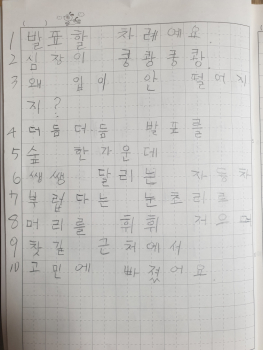 1 발표할 차례예요.
2 심장이 쿵쾅쿵쾅.
3 왜 입이 안 떨어지
지?
4 더듬더듬 발표를
5 숲 한가운데
6 쌩쌩 달리는 자동차
7 부럽다는 눈초리로
8 머리를 휘휘 저으며
9 찻길 근처에서
10 고민에 빠졌어요